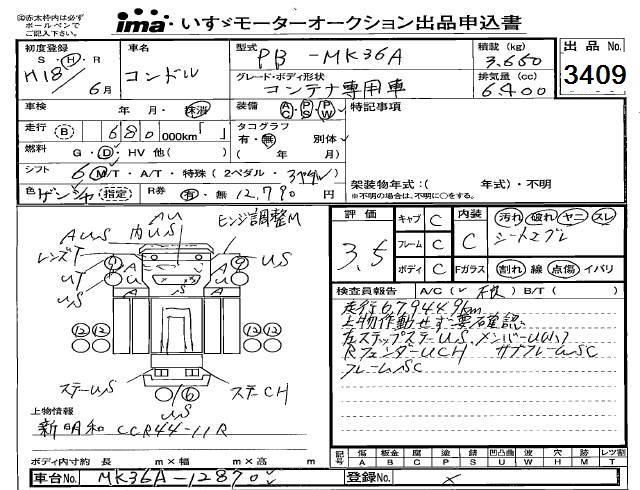 ◎赤太枠内は必ず
ボールペンで
ご記入下さい。
ima いすゞモーターオークション出品申込書
初度登録
S・H・R
H18 6月
車名
コンドル
型式
PB-MK36A
積載(kg)
3,650
出品No.
3409
グレード・ボディ形状
コンテナ専用車
排気量(cc)
6400
車検 年 月・抹消
装備 AC PS PW
特記事項
走行 B 680 000km
タコグラフ
有・無 別体
( 年 月)
燃料 G・D・HV 他( )
シフト 6 M/T・A/T・特殊(2ペダル・ )
架装物年式:( 年式)・不明
※不明の場合は、不明に○をする。
色 ゲンジャ 指定 R券 有・無 12,790円
AU
AUS 内US ヒンジ調整M
レンズT
UT
US
US
A A
U U
A A
12 12 12 12
ステーUS
ステーCH
6
US
評価
3.5
キャブ C
フレーム C
ボディ C
内装 C
汚れ 破れ ヤニ スレ
シートエプレ
Fガラス 割れ 線 点傷 イバリ
検査員報告 A/C( ) B/T( )
走行679449km
上物作動せず要確認
左ステップステーUS、メンバーU
RフェンダーUCH サブフレームSC
フレームSC
上物情報
新明和 CCR44-11R
ボディ内寸約 長 m×幅 m×高 m
記号
傷 板金 腐 塗 錆 凹凸曲 波 穴 跡 レツ割
A B C P S U W H M T
車台No. MK36A-12870
登録No. ×